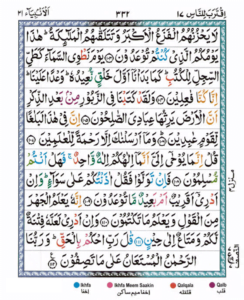 اِقْتَرَبَ لِلنَّاسِ ١٧ ٣٣٢ اَلْاَنْبِيَآء ٢١
لَا يَحْزُنُهُمُ الْفَزَعُ الْاَكْبَرُ وَتَتَلَقّٰىهُمُ الْمَلٰٓئِكَةُ ؕ هٰذَا
يَوْمُكُمُ الَّذِىْ كُنْتُمْ تُوْعَدُوْنَ ﴿١٠٣﴾ يَوْمَ نَطْوِى السَّمَآءَ كَطَىِّ
السِّجِلِّ لِلْكُتُبِ ؕ كَمَا بَدَاْنَاۤ اَوَّلَ خَلْقٍ نُّعِيْدُهٗ ؕ وَعْدًا عَلَيْنَا ؕ
اِنَّا كُنَّا فٰعِلِيْنَ ﴿١٠٤﴾ وَلَقَدْ كَتَبْنَا فِى الزَّبُوْرِ مِنْۢ بَعْدِ الذِّكْرِ
اَنَّ الْاَرْضَ يَرِثُهَا عِبَادِىَ الصّٰلِحُوْنَ ﴿١٠٥﴾ اِنَّ فِىْ هٰذَا لَبَلٰغًا
لِّقَوْمٍ عٰبِدِيْنَ ﴿١٠٦﴾ وَمَاۤ اَرْسَلْنٰكَ اِلَّا رَحْمَةً لِّلْعٰلَمِيْنَ ﴿١٠٧﴾
قُلْ اِنَّمَا يُوْحٰۤى اِلَىَّ اَنَّمَاۤ اِلٰهُكُمْ اِلٰهٌ وَّاحِدٌ ۚ فَهَلْ اَنْتُمْ
مُّسْلِمُوْنَ ﴿١٠٨﴾ فَاِنْ تَوَلَّوْا فَقُلْ اٰذَنْتُكُمْ عَلٰى سَوَآءٍ ؕ وَاِنْ
اَدْرِىْۤ اَقَرِيْبٌ اَمْ بَعِيْدٌ مَّا تُوْعَدُوْنَ ﴿١٠٩﴾ اِنَّهٗ يَعْلَمُ الْجَهْرَ
مِنَ الْقَوْلِ وَيَعْلَمُ مَا تَكْتُمُوْنَ ﴿١١٠﴾ وَاِنْ اَدْرِىْ لَعَلَّهٗ فِتْنَةٌ
لَّكُمْ وَمَتَاعٌ اِلٰى حِيْنٍ ﴿١١١﴾ قٰلَ رَبِّ احْكُمْ بِالْحَقِّ ؕ وَرَبُّنَا
الرَّحْمٰنُ الْمُسْتَعَانُ عَلٰى مَا تَصِفُوْنَ ﴿١١٢﴾
Ikhfa Ikhfa Meem Saakin Qalqala Qalb
اخفا اخفا میم ساکن قلقلہ قلب